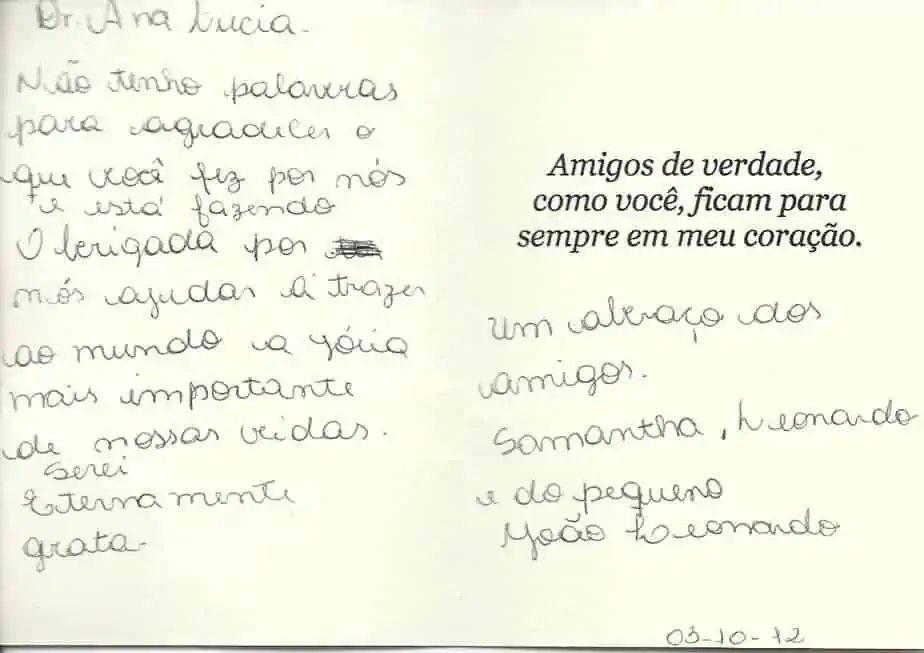 Dr. Ana Lucia.
Não tenho palavras
para agradecer o
que você fez por nós
e está fazendo
Obrigada por
nós ajudar á trazer
ao mundo a jóia
mais importante
de nossas vidas.
Serei
Eternamente
grata.
Amigos de verdade,
como você, ficam para
sempre em meu coração.
Um abraço dos
amigos.
Samantha, Leonardo
e do pequeno
João Leonardo
03-10-12